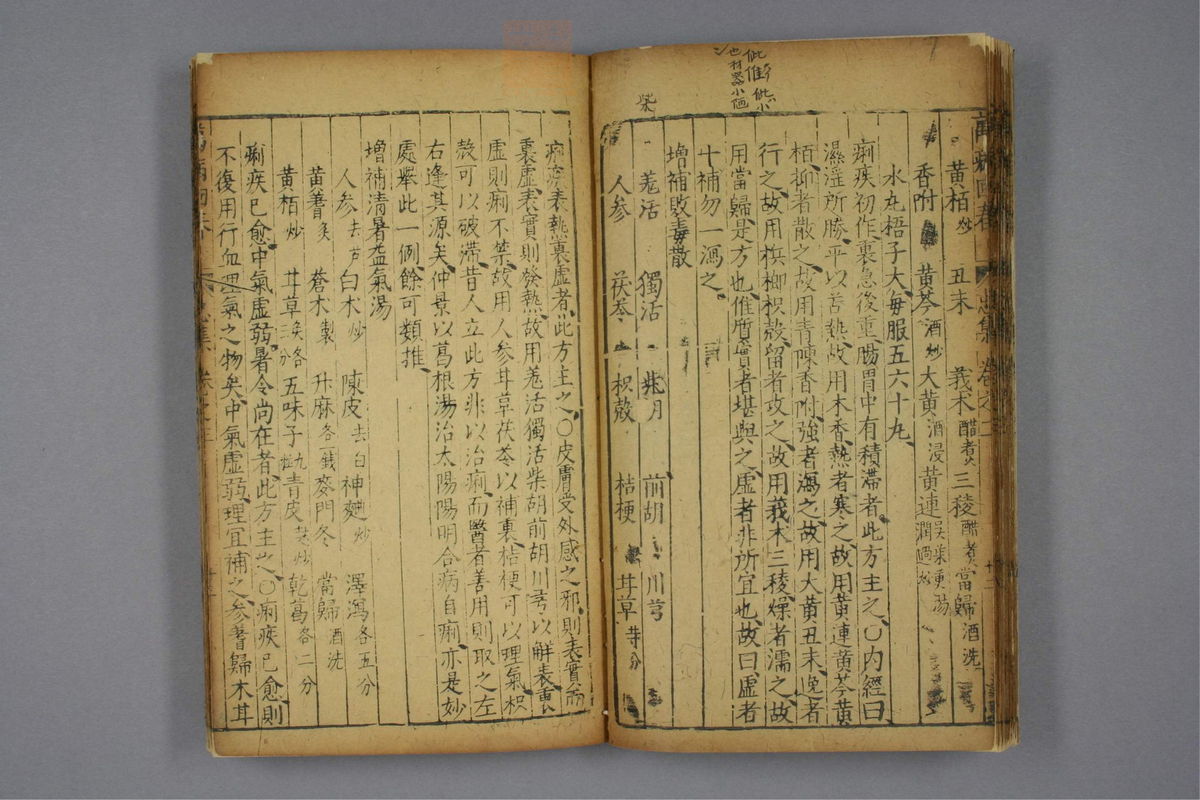 萬病回春
忠集
卷之三
黃栢炒 丑末 莪朮醋煮 三稜醋煮 當歸酒洗
香附 黃芩酒炒 大黃酒浸 黃連吳茱萸湯潤過炒
水丸梧子大每服五六十丸
痢疾初作裏急後重腸胃中有積滯者此方主之〇內經曰
濕滛所勝平以苦熱故用木香熱者寒之故用黃連黃芩黃
栢抑者散之故用青陳香附強者瀉之故用大黃丑末逸者
行之故用梹榔枳殼留者攻之故用莪朮三稜燥者濡之故
用當歸是方也惟質實者堪與之虛者非所宜也故曰虛者
十補勿一瀉之
增補敗毒散
羗活 獨活 柴胡 前胡 川芎
人參 茯苓 枳殼 桔梗 甘草等分
柴
痢疾表熱裏虛者此方主之〇皮膚受外感之邪則表實而
裏虛表實則發熱故用羗活獨活柴胡前胡川芎以解表裏
虛則痢不禁故用人參甘草茯苓以補裏桔梗可以理氣枳
殼可以破滯昔人立此方非以治痢而醫者善用則取之左
右逢其源矣仲景以葛根湯治太陽陽明合病自痢亦是妙
處舉此一例餘可類推
增補清暑益氣湯
人參去芦 白朮炒 陳皮去白 神麯炒 澤瀉各五分
黃蓍炙 蒼朮製 升麻各一錢 麥門冬 當歸酒洗
黃栢炒 甘草炙各三分 五味子九粒 青皮麸炒 乾葛各二分
痢疾已愈中氣虛弱暑令尚在者此方主之〇痢疾已愈則
不復用行血理氣之物矣中氣虛弱理宜補之參蓍歸朮甘